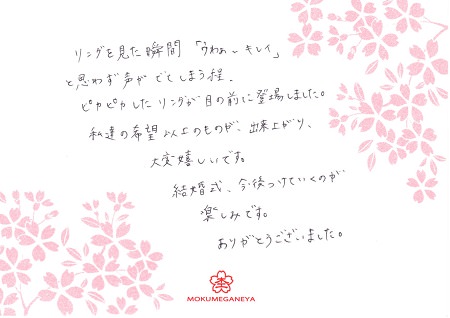 リングを見た瞬間「うわぁーキレイ」
と思わず声がでてしまう程、
ピカピカしたリングが目の前に登場しました。
私達の希望以上のものが、出来上がり、
大変嬉しいです。
結婚式、今後つけていくのが
楽しみです。
ありがとうございました。
MOKUMEGANEYA